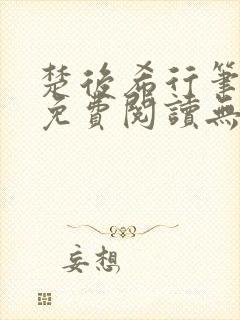 楚後希行筆
免費閱讀無
妄想